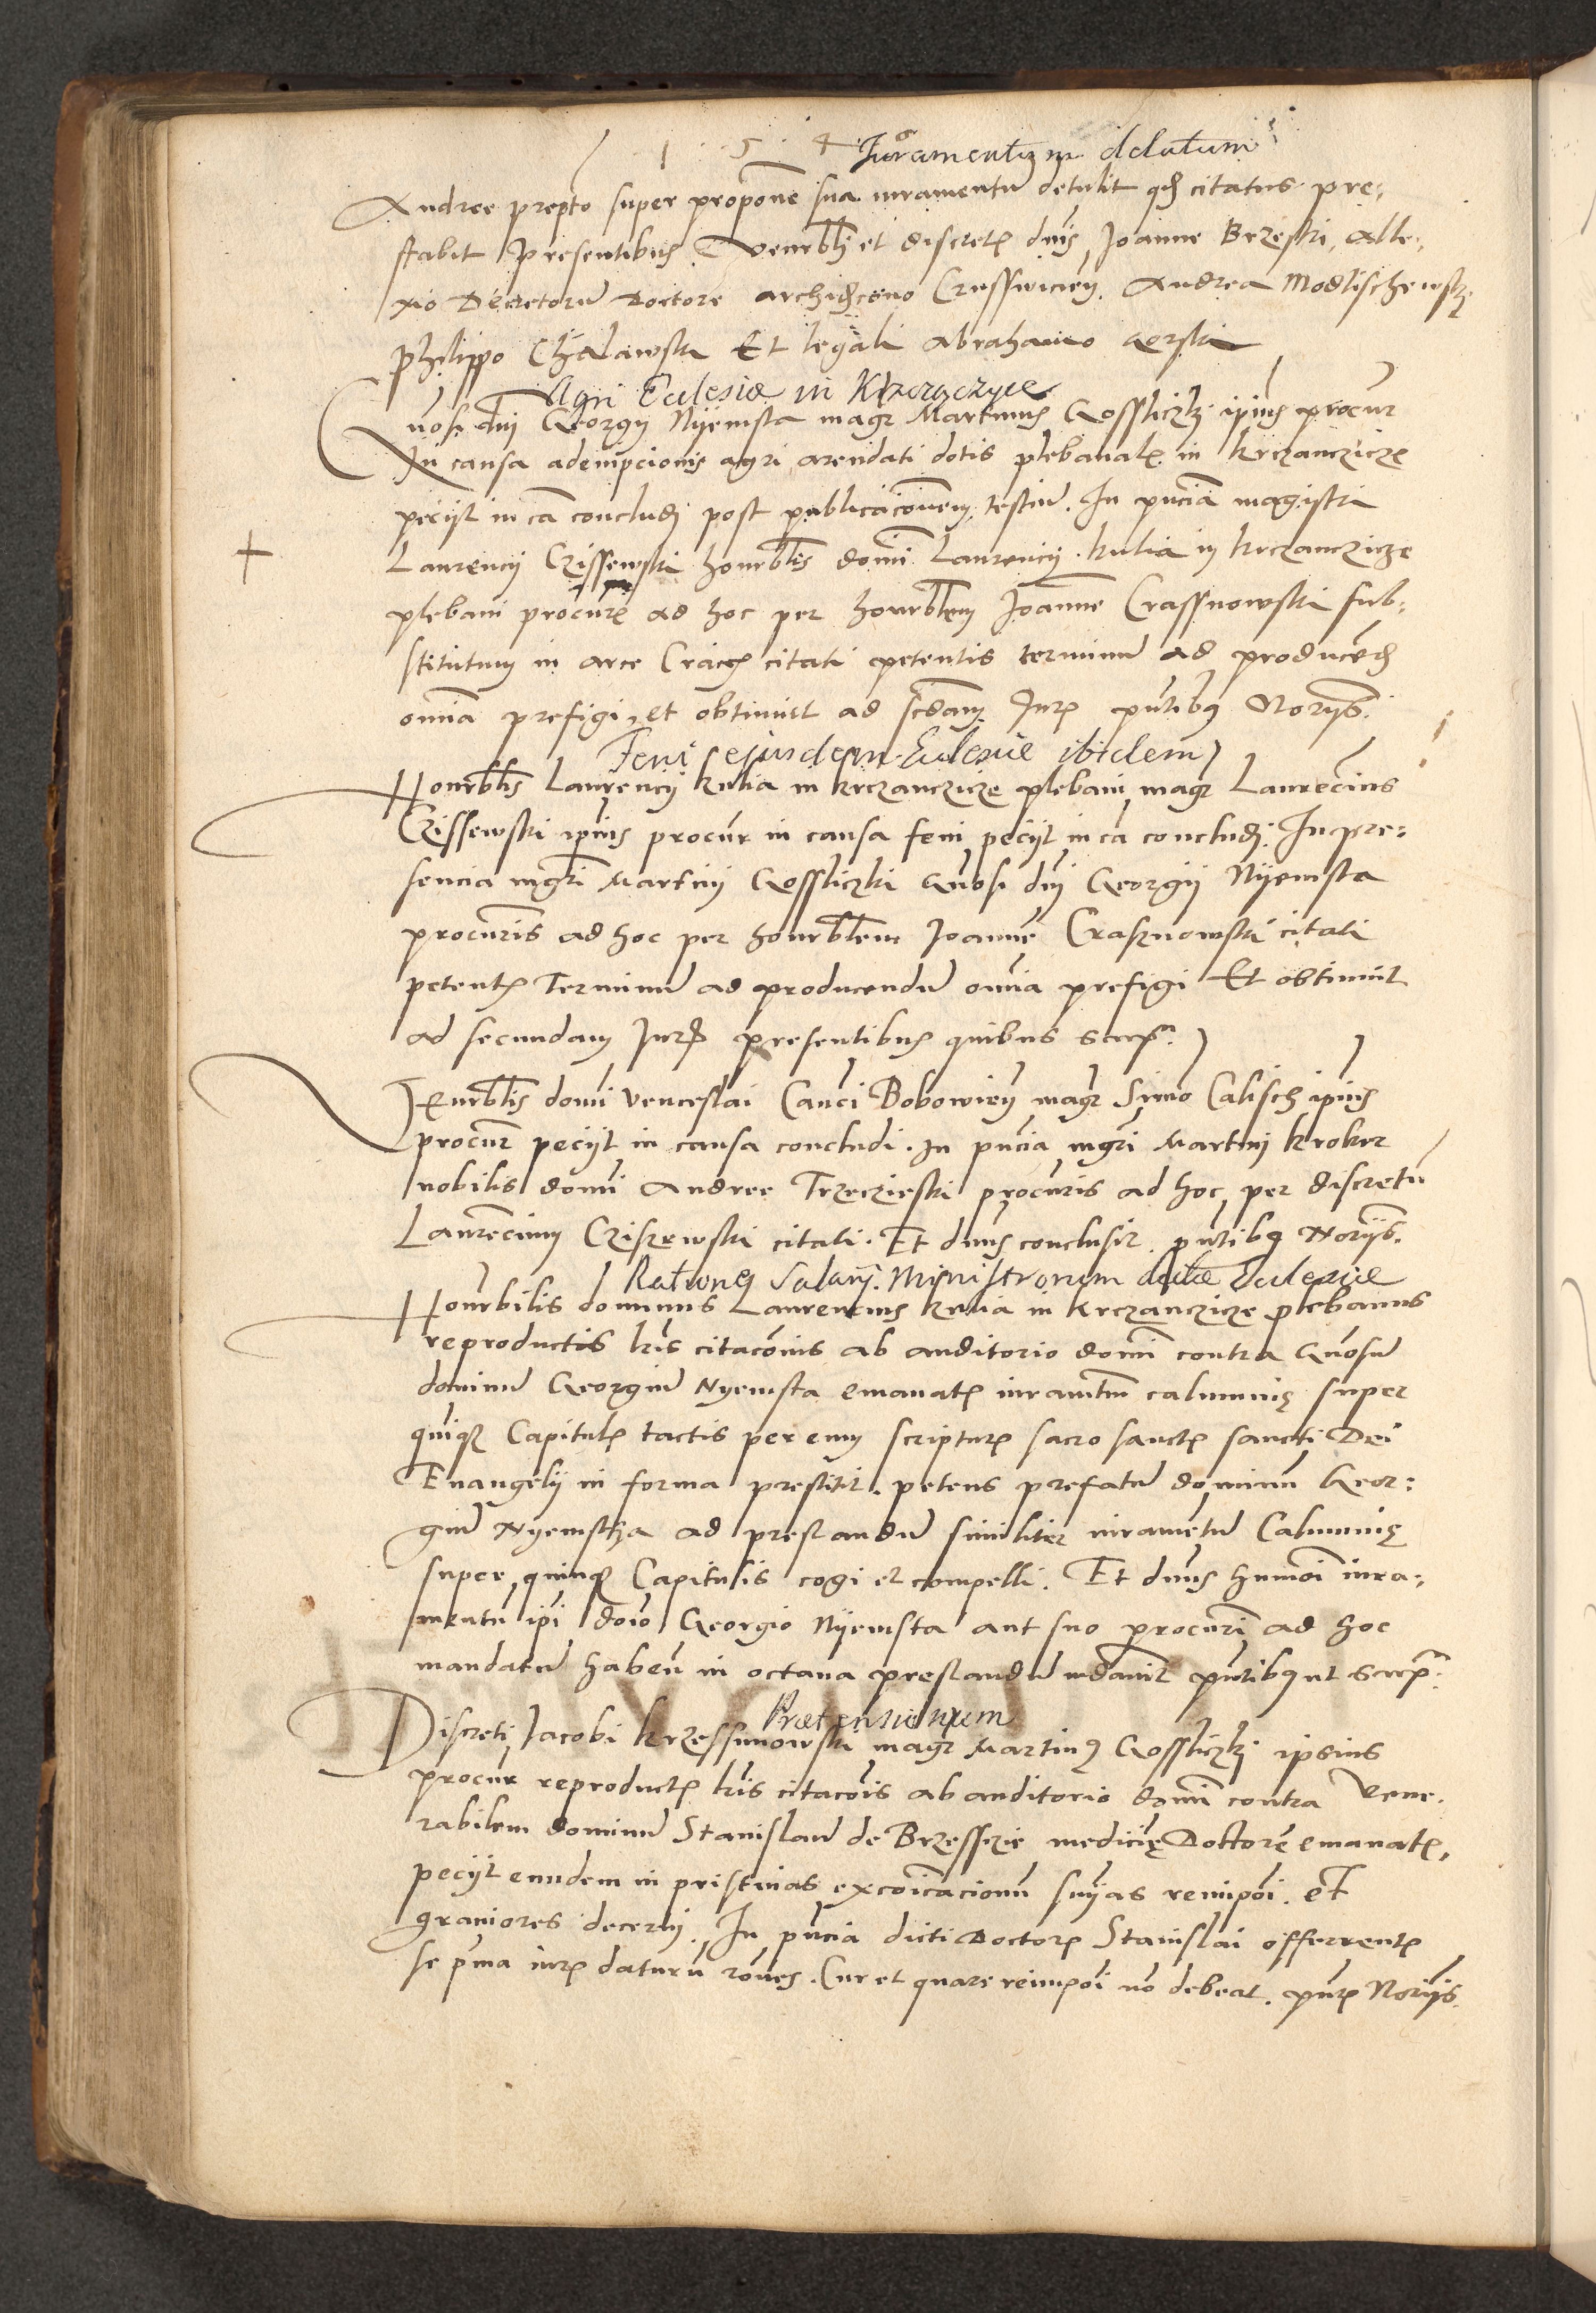 1 5 4
Juramentum delatum
Andree prepto super propone sua iuramentu detulit qd citatus pre-
stabit Presentibus Venerbli et discretis dnis Joanne Brzeski, Alle-
xio Decretoru Doctore archidcono Crusswicien. Andrea Modlischewski
Philippo Chalawski Et legali Abrahamo Gorski
Agri Eclesiæ in Krzczączyce
Gnosi dni Georgy Nijemsta magr Martinus Gossliczki ipius procur
In causa adempcionis agri arendati dotis plebanalis in Krczanczicze
peciit in ca concludi post publicacionem testiu. In pncia magistri
Laurencij Czissewski honrblis domi Laurencij Kulia in Krczanczicze
plebani procuris ad hoc per honrblem Joanne Crassnowski sub-
stitutum in arce Cracovi citati petentis terminu ad producend
omia prefigi, et obtinuit ad scdam Juris pntibus Norijs.
Feni ejusdem Eclesiæ ibidem
Honrblis Laurencij Kulia in Krczanczicze plebani magr Laurecius
Czissewski ipius procur in causa feni peciit in ca concludi. In pre-
sencia mgri Martini Gossliczki Gnosi dni Georgij Nijemsta
procuris ad hoc per honrblem Joanne Crasznowski citati
petentis Terminu ad producendu omia prefigi Et obtinuit
ad secundam Juris presentibus quibus supra.
Venrblis domi Venceslai Canci Bobowien magr Simo Calisch ipius
procur peciit in causa concludi. In pncia mgri Martini Kroker
nobilis domi Andree Trzeczieski procuris ad hoc per discretu
Laurecium Cziszewski citati. Et dnus conclusit. pntibus Norijs.
Rationę Salarij Ministrorum dictæ Eclesiæ
Honrbilis dominus Laurencius Kulia in Krczanczicze plebanus
reproductis lris citaconis ab auditorio domi contra Gnosu
dominu Georgiu Nyemsta emanatis iuramtm calumnie super
quiqz Capitulis tactis per eum scripturis sacro sanctis sancti Dei
Evangelij in forma prestitit. petens prefatu dominu Geor-
giu Nyemstha ad prestandu similiter iurametu Calumnie
super quinqz Capitulis cogi et compelli. Et dnus humoi iura-
mentu ipi domo Georgio Nijemsta aut suo procuri ad hoc
mandatu haben in octava prestandu mdavit pntibus ut supra.
Prætensionum
Discreti Jacobi Krzessimowski magr Martinus Gossliczki ipsius
procur reproductis lris citacois ab auditorio domi contra Vene-
rabilem dominu Stanislau de Brzesszie medicie Doctore emanatis,
peciit eundem in pristinas excoicacionu snias reimpoi. et
graviores decerni. In pncia dicti Doctoris Stanislai offerentis
se prima iuris daturu rones. Cur et quare reimpoi no debeat. pntis Norijs.